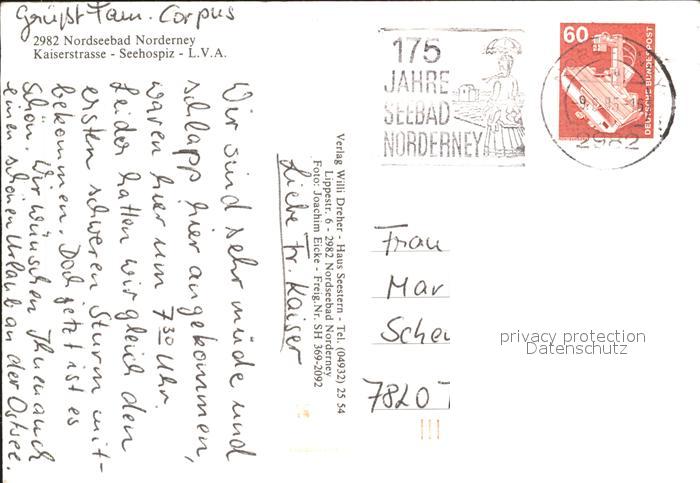 Grüßt Fam. Corpus
2982 Nordseebad Norderney
Kaiserstrasse - Seehospiz - L.V.A.
Liebe Fr. Kaiser
Wir sind sehr müde und
schlapp hier angekommen,
waren hier um 7 30 Uhr.
Leider hatten wir gleich den
ersten schweren Sturm mit-
bekommen. Doch jetzt ist es
schön. Wir wünschen Ihnen auch
einen schönen Urlaub an der Ostsee.
Verlag Willi Dreher - Haus Seestern - Tel. (04932) 25 54
Lippestr. 6 - 2982 Nordseebad Norderney
Foto: Joachim Eicke - Freig.Nr. SH 369-2092
175
JAHRE
SEEBAD
NORDERNEY
60
DEUTSCHE BUNDESPOST
2982
Frau
Mar
Scheu
7820
privacy protection
Datenschutz